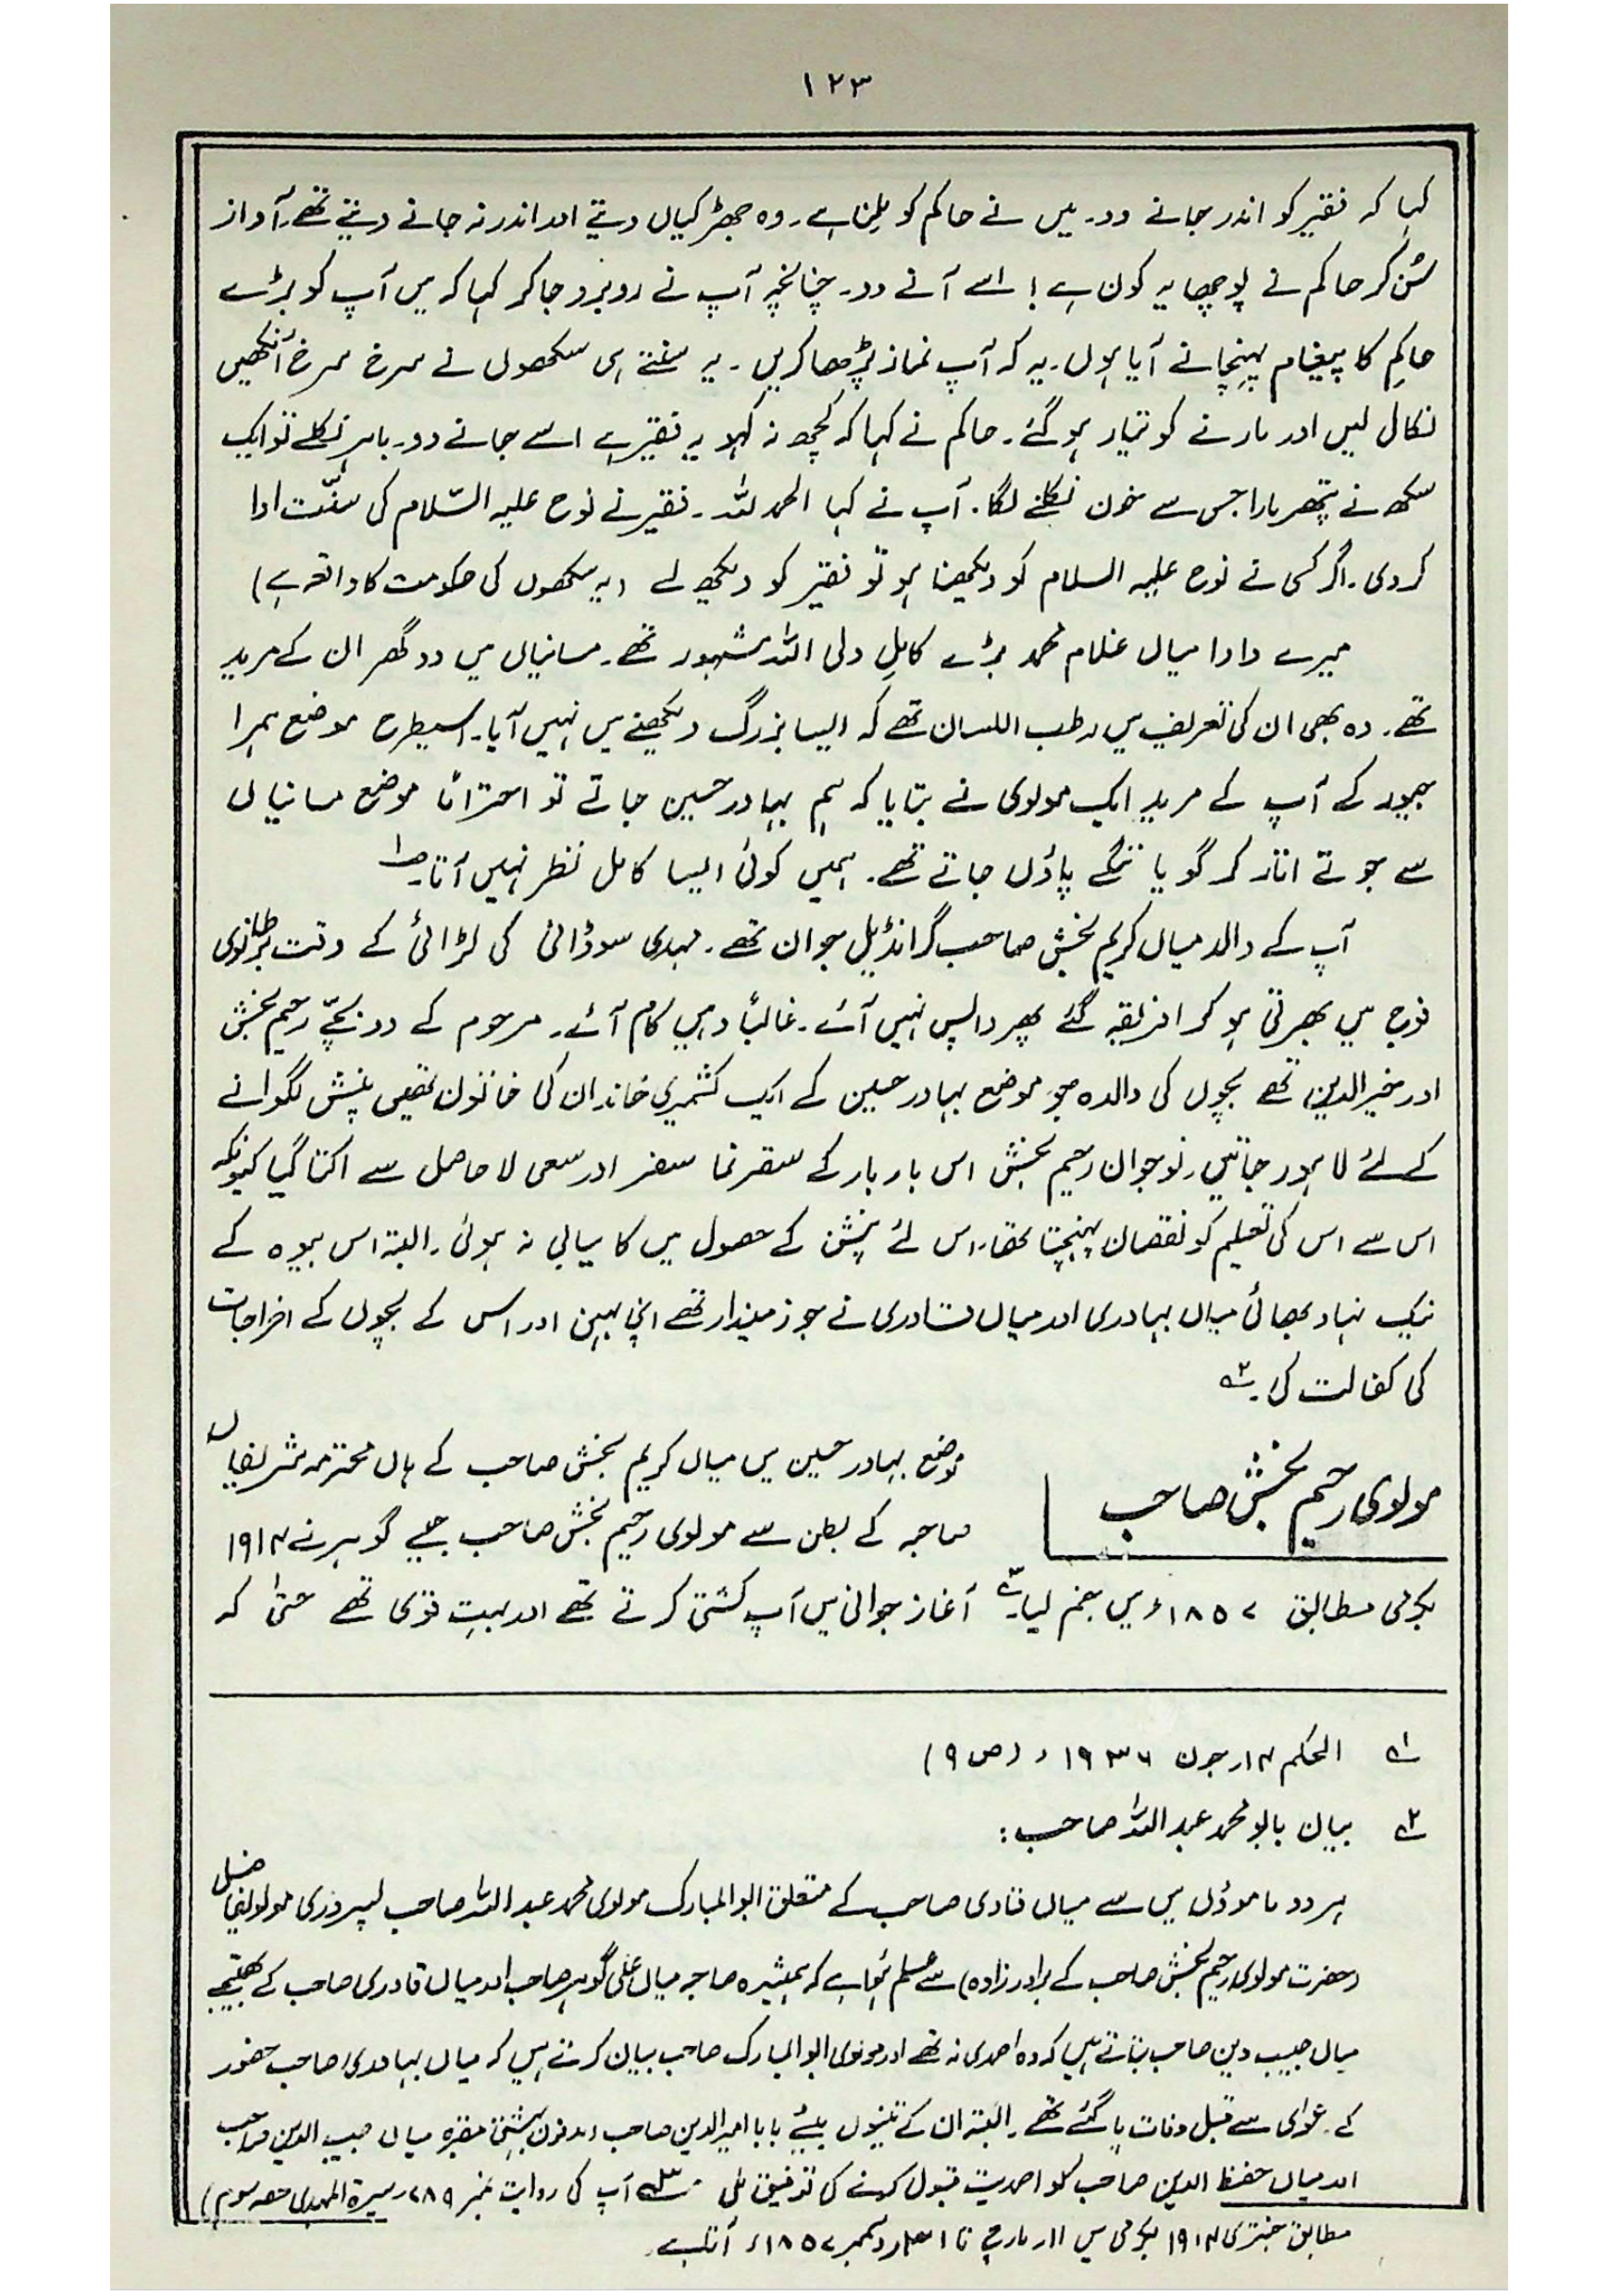 ۱۲۳
کہا کہ فقیر کو اندر جانے دو۔ میں نے حاکم کو ملنا ہے۔ وہ جھڑکیاں دیتے اور اندر نہ جانے دیتے تھے۔ آواز
سُن کر حاکم نے پوچھا یہ کون ہے! اسے آنے دو۔ چنانچہ آپ نے روبرو جا کر کہا کہ میں آپ کو بڑے
حاکم کا پیغام پہنچانے آیا ہوں۔ یہ کہ آپ نماز پڑھا کریں۔ یہ سنتے ہی سکھوں نے سرخ سرخ آنکھیں
نکال لیں اور مارنے کو تیار ہو گئے۔ حاکم نے کہا کہ کچھ نہ کہو یہ فقیر ہے اسے جانے دو۔ باہر نکلے تو ایک
سکھ نے پتھر مارا جس سے خون نکلنے لگا۔ آپ نے کہا الحمد للہ۔ فقیر نے نوح علیہ السّلام کی سنّت ادا
کر دی۔ اگر کسی نے نوح علیہ السلام کو دیکھنا ہو تو فقیر کو دیکھ لے (یہ سکھوں کی حکومت کا واقعہ ہے)
میرے دادا میاں غلام محمد بڑے کامل ولی اللہ مشہور تھے۔ مسانیاں میں دو گھر ان کے مرید
تھے۔ وہ بھی ان کی تعریف میں رطب اللسان تھے کہ ایسا بزرگ دیکھنے میں نہیں آیا۔ اسیطرح موضع ہمرا
کے آپ کے مرید ایک مولوی نے بتایا کہ ہم بہادر حسین جاتے تو احتراماً موضع مسانیاں
سے جوتے اتار کر گویا ننگے پاؤں جاتے تھے۔ ہمیں کوئی ایسا کامل نظر نہیں آتا۔ ۱؎
آپ کے والد میاں کریم بخش صاحب گرانڈیل جوان تھے۔ مہدی سوڈانی کی لڑائی کے وقت برطانوی
فوج میں بھرتی ہو کر افریقہ گئے پھر واپس نہیں آئے۔ غالباً وہیں کام آئے۔ مرحوم کے دو بچّے رحیم بخش
اور خیر الدین تھے بچوں کی والدہ جو موضع بہادر حسین کے ایک کشمیری خاندان کی خاتون تھیں پنشن لگوانے
کے لئے لاہور جاتیں۔ نوجوان رحیم بخش اس بار بار کے سقر نما سفر اور سعی لا حاصل سے اکتا گیا کیونکہ
اس سے اس کی تعلیم کو نقصان پہنچتا تھا۔ اس لئے پنشن کے حصول میں کامیابی نہ ہوئی۔ البتہ اس بیوہ کے
نیک نہاد بھائی میاں بہادری اور میاں قادری نے جو زمیندار تھے اپنی بہن اور اس کے بچوں کے اخراجات
کی کفالت کی۔ ۲؎
مولوی رحیم بخش صاحب
موضع بہادر حسین میں میاں کریم بخش صاحب کے ہاں محترمہ شریفاں
صاحبہ کے بطن سے مولوی رحیم بخش صاحب جیسے گوہر نے ۱۹۱۴
بکرمی مطابق ۱۸۵۷ء میں جنم لیا۔ ۳؎ آغاز جوانی میں آپ کشتی کرتے تھے اور بہت قوی تھے حتیٰ کہ
۱؎ الحکم ۱۴؍ جون ۱۹۳۶ء (ص ۹)
۲؎ بیان بابو محمد عبد اللہ صاحب:
ہر دو ماموؤں میں سے میاں قادری صاحب کے متعلق ابو المبارک مولوی محمد عبد اللہ صاحب پسروری مولوی فاضل
(حضرت مولوی رحیم بخش صاحب کے برادر زادہ) سے علم ہوا ہے کہ ہمشیرہ صاحبہ میاں علی گوہر صاحب اور میاں قادری صاحب کے بھتیجے
میاں حبیب دین صاحب بتاتے ہیں کہ وہ احمدی نہ تھے اور مولوی ابو المبارک صاحب بیان کرتے ہیں کہ میاں بہادری صاحب حضور
کے دعوای سے قبل وفات پا گئے تھے۔ البتہ ان کے تینوں بیٹے بابا امیر الدین صاحب (مدفون بہشتی مقبرہ میاں حبیب الدین صاحب
اور میاں حفیظ الدین صاحب کو احمدیت قبول کرنے کی توفیق ملی ۳؎ آپ کی روایت نمبر ۲۸۹ (سیرۃ المہدی حصہ سوم)
مطابق جنتری ۱۹۱۴ بکرمی میں ۱۱؍ مارچ تا ۳۱؍ دسمبر ۱۸۵۷ء آتا ہے۔